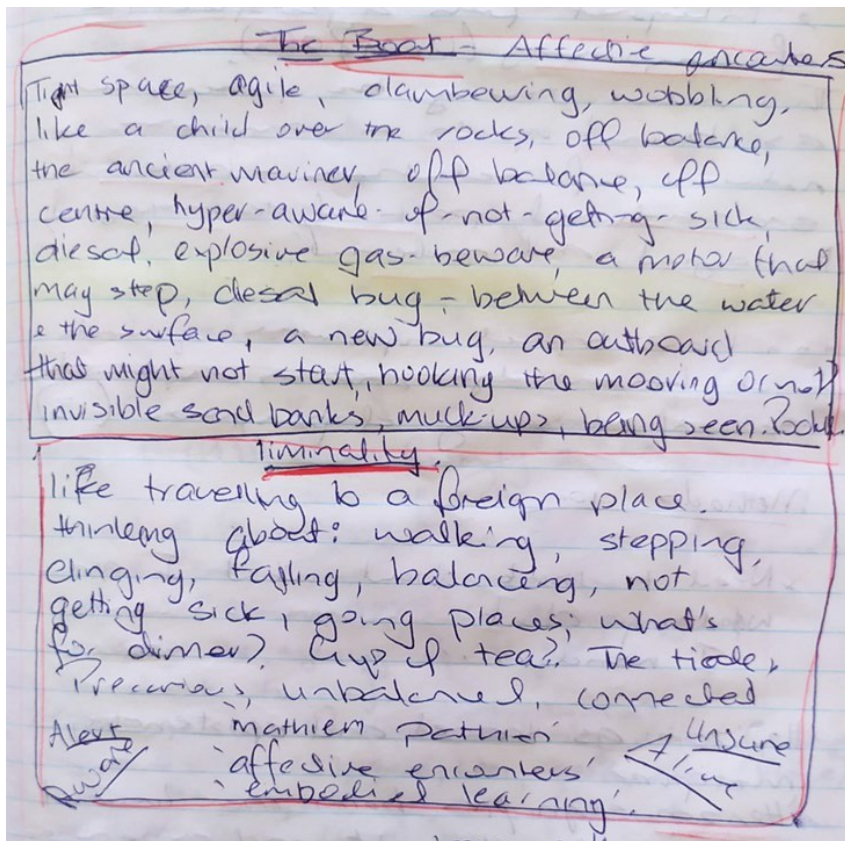 The Boat - Affective encounters
Tight space, agile, clambewing, wobbling,
like a child over the rocks, off balance,
the ancient mariner, off balance, off
centre, hyper-aware-of-not-getting-sick,
diesel, explosive gas-beware, a motor that
may stop, diesal bug - between the water
& the surface, a new bug, an outboard
that might not start, hooking the mooring or not?
invisible sand banks, muck-ups, being seen. Rocks.
liminality.
like travelling to a foreign place.
thinking about: walking, stepping,
clinging, falling, balancing, not
getting sick, going places, what's
for dinner? Cup of tea? The tide,
Precarious, unbalanced, connected
Alert 'mathiem pathien' Unsure
Aware 'affective encounters' Alive
'embodied learning'.